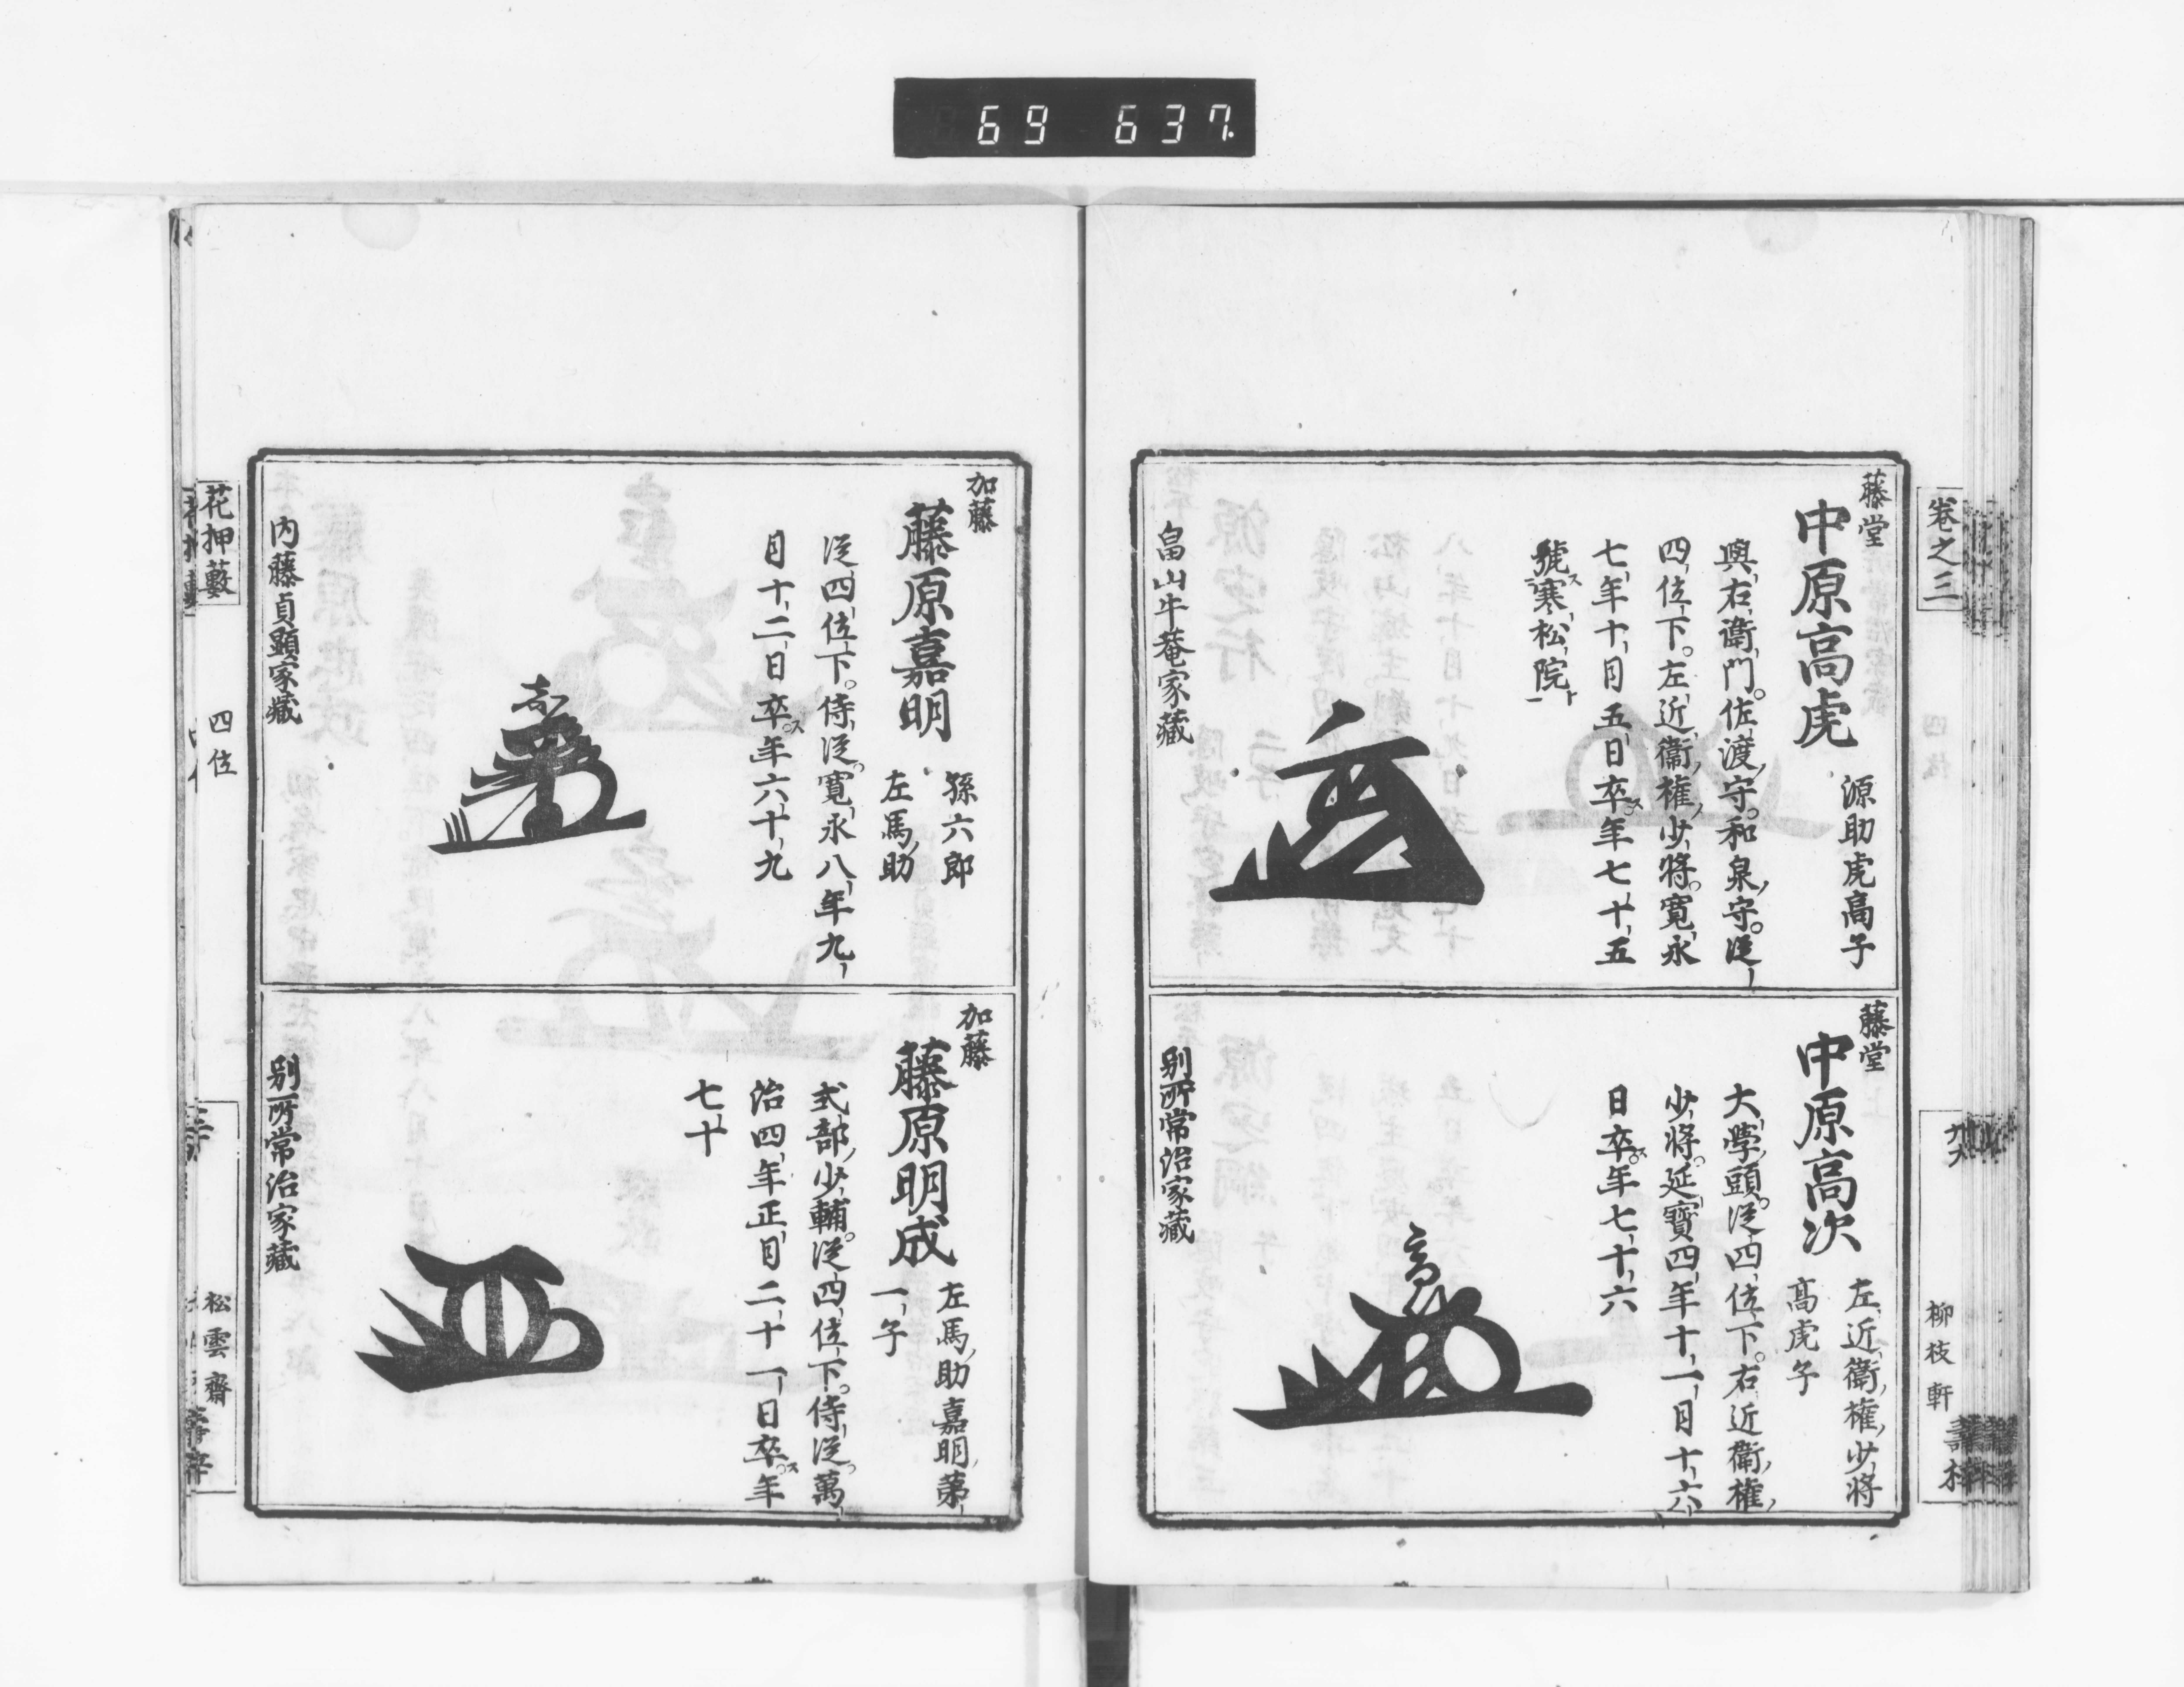 69 637.
卷之三
藤堂
中原高虎
源助虎高子
與右衞門。佐渡守。和泉守。從
四位下。左近衞權少將。寛永
七年十月五日卒ス。年七十五
號ス寒松院ト
畠山牛菴家藏
藤堂
中原高次
左近衞權少將
高虎子
大學頭。從四位下。右近衞權
少將。延寶四年十一月十六
日卒ス。年七十六
別所常治家藏
柳枝軒
加藤
藤原嘉明
孫六郎
左馬助
從四位下。侍從。寛永八年九
月十二日卒ス。年六十九
内藤貞顯家藏
加藤
藤原明成
左馬助嘉明第
一子
式部少輔。從四位下。侍從。萬
治四年正月二十一日卒ス。年
七十
別所常治家藏
花押藪
四位
松雲齋